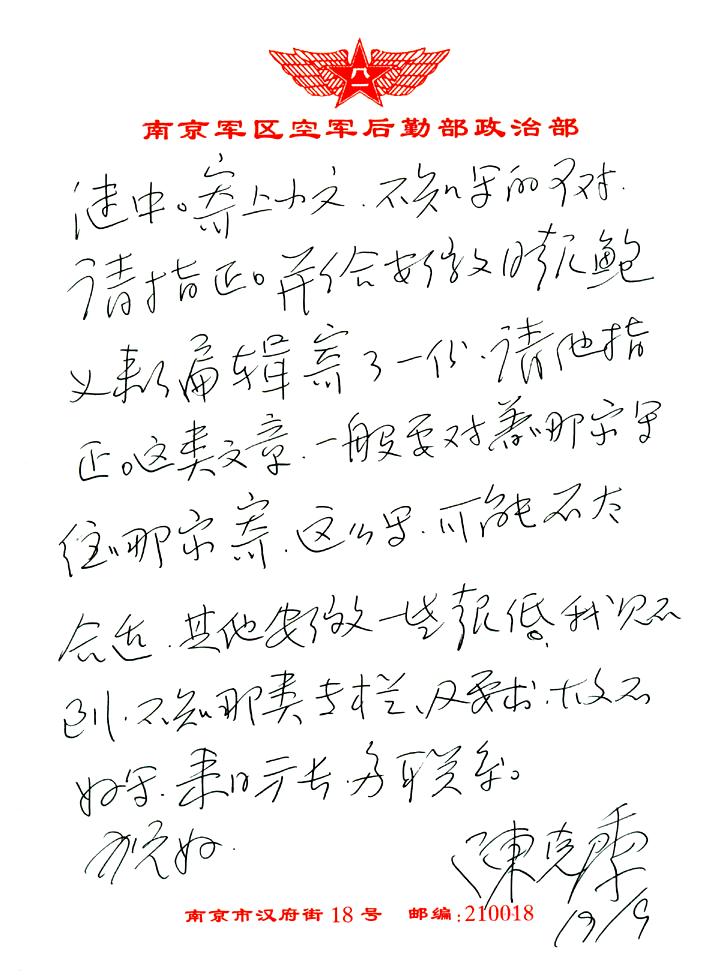 八一
南京军区空军后勤部政治部
健中。寄上小文、不知写的可对、
请指正。并给安徽日报鲍
义来编辑寄了一份、请他指
正。这类文章、一般要对着那家写
往那家寄、这么写、可能不太
合适、其他安徽一些报纸、我见不
到、不知那类专栏、及要求、故不
好写、来日方长、多联系。
祝好、
陈克
19/9
南京市汉府街 18 号 邮编:210018